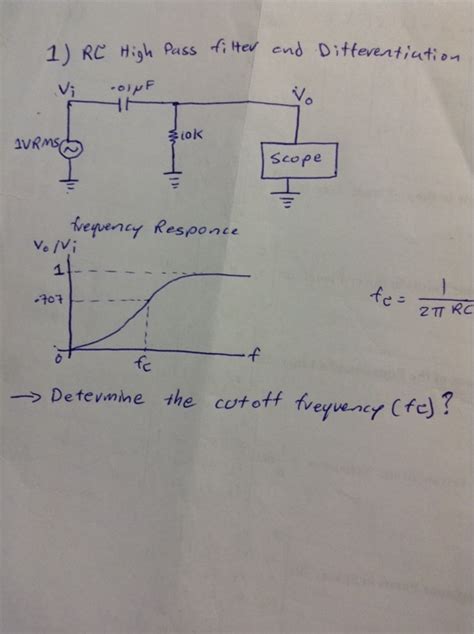 1) RC High Pass filter and Differentiation
Vi .01μF Vo
1VRMS 10K Scope
frequency Responce
Vo/Vi
1
.707
fc = 1 / 2π RC
0 fc f
→ Determine the cutoff frequency (fc)?